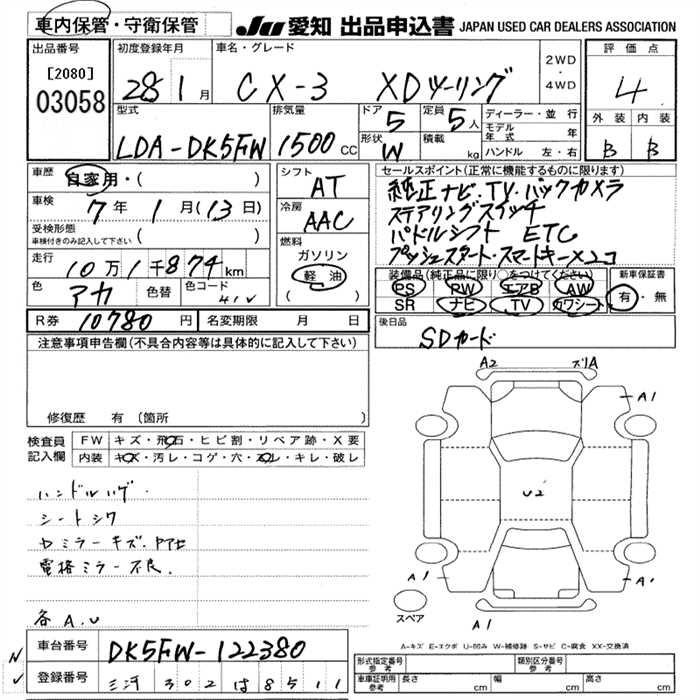 車内保管・守衛保管
JU 愛知 出品申込書 JAPAN USED CAR DEALERS ASSOCIATION
出品番号 初度登録年月 車名・グレード 評価点
[2080] 2WD
03058 28 1月 CX-3 XDツーリング ・ 4
4WD
型式 排気量 ドア 定員 ディーラー・並行 外装 内装
LDA-DK5FW 1500cc 5 5人 モデル年式 年
形状 積載 B B
W kg ハンドル 左・右
車歴 自家用・( ) シフト セールスポイント(正常に機能するものに限ります)
AT 純正ナビ.TV.バックカメラ
車検 7年1月(13日) 冷房 ステアリングスイッチ
受検形態 AAC パドルシフト ETC
車検付きのみ記入して下さい ( ) 燃料 プッシュスタート・スマートキー×2コ
走行 10万1千874km ガソリン 装備品(純正品に限り○をつけてください) 新車保証書
軽油 PS PW エアB AW 有・無
色 アカ 色替 色コード 41V ( ) SR ナビ TV カワシート
R券 10780円 名変期限 月 日 後日品
SDカード
注意事項申告欄(不具合内容等は具体的に記入して下さい)
A2 ズリA
A1
修復歴 有 (箇所
検査員 FW キズ・飛石・ヒビ割・リペア跡・X要
記入欄 内装 キズ・汚レ・コゲ・穴・スレ・キレ・破レ
U2
ハンドルハゲ.
シートシワ
キズ.
電格ミラー不良.
A1 A1
スペア
各A.U A1
車台番号 DK5FW-122380 A-キズ E-エクボ U-凹み W-補修跡 S-サビ C-腐食 XX-交換済
登録番号 三河 302 は 8511 形式指定番号 参考 類別区分番号 参考
車庫証明用 参考 長さ cm 幅 cm 高さ cm